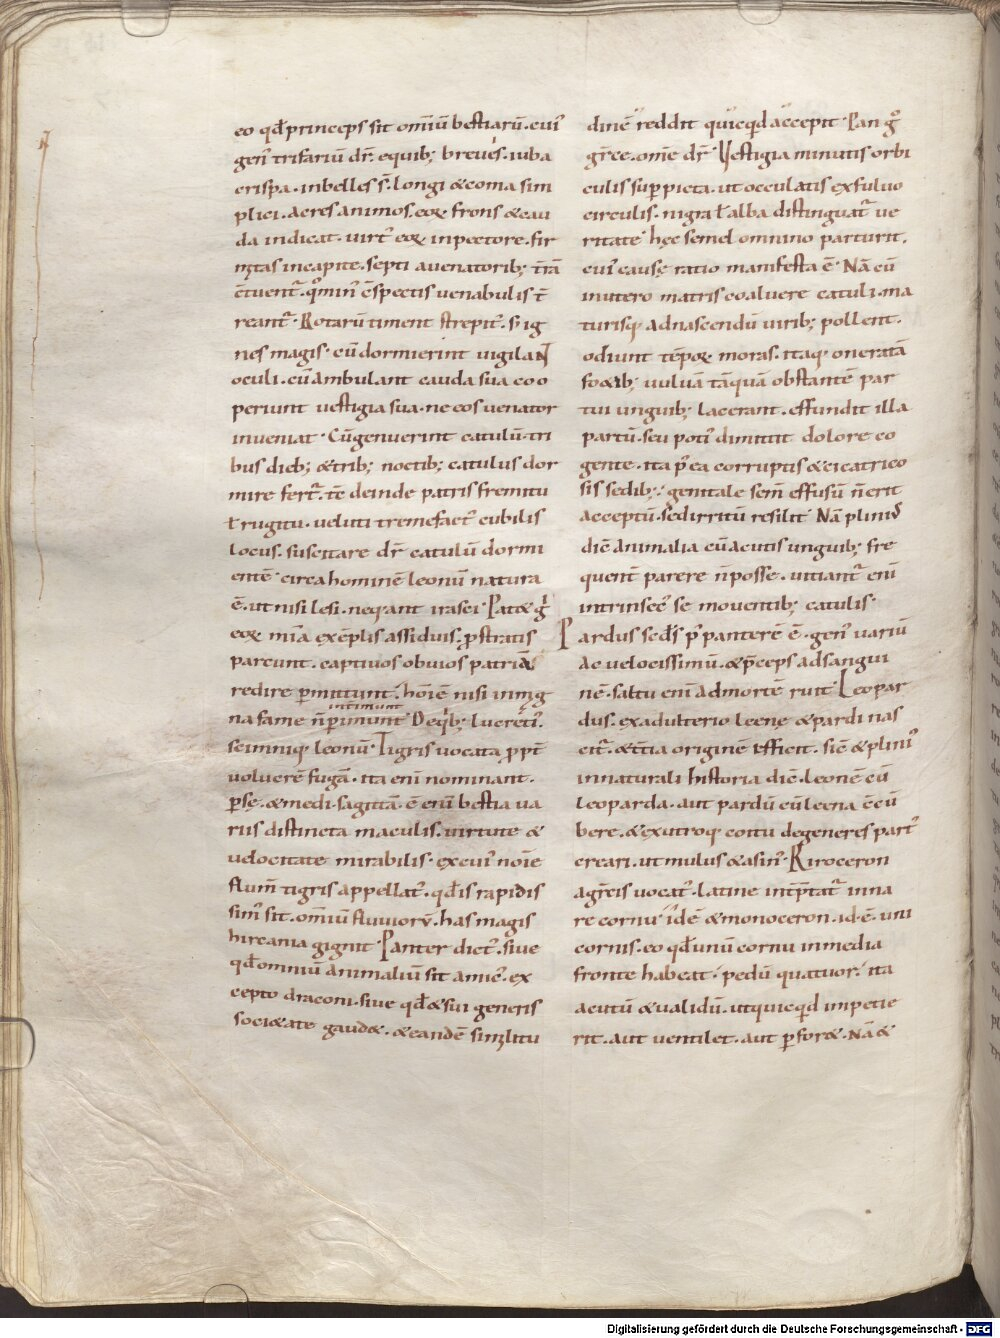 eo qđ princeps sit omīū bestiarū. cui᾽
gen᾽ trifariū dr̄. equib; breues. iuba
crispa. inbelles s̄. longi & coma sim
plici. acres animos. eoꝝ frons & cau
da indicat. uirt᾽ eoꝝ inpectore. fir
mitas incapite. septi auenatorib; t̄rā
 uenabulis t̄
reant᾽. Rotarū timent strepit᾽. s; ig
nes magis. cū dormierint uigilaNT
oculi. cū ambulant cauda sua coo
periunt uestigia sua. ne eos uenator
inueniat. Cū genuerint catulū. tri
bus dieb; & trib; noctib; catulus dor
mire fert᾽. tē deinde patris fremitu
ł rugitu. ueluti tremefact᾽ cubilis
locus. suscitare dr̄ catulū dormi
entē. circa hominē leonū natura
ē. ut nisi lesi. neq̄ant irasci. Pat& ḡ
eoꝝ mīa exēplis assiduis. ꝓstratis
parcunt. captiuos obuios patriā
redire ꝑmittunt. hoīē nisi inmag
intimunt
na fame n̄ ꝑimunt. Deqib; lucreti᾽.
seimniq; leonū. Tigris uocata ꝓpt̄
uolucrē fugā. ita enī nominant.
ꝑsę. & medi. sagittā. ē enī bestia ua
riis distincta maculis. uirtute &
uelocitate mirabilis. ex cui᾽ noīe
flum̄ tigris appellat᾽. qđ is rapidis
sim᾽ sit. omīū fluuiorū. has magis
hircania gignit. Panter dict᾽. siue
qđ omniū animaliū sit amic᾽. ex
cepto draconi. siue qđ & sui generis
soci&ate gaud&. & eandē similitu
dinē reddit quicqđ accepit. Pan ḡ
grece. omē dr̄. Vestigia minutis orbi
culis suꝑ picta. ut occulatis ex fuluo
circulis. nigra ł alba distinguat᾽ ue
ritate. hęc semel omnino parturit.
cui᾽ causę ratio manifesta ē. Nā cū
inutero matris coaluere catuli. ma
turisq; ad nascendū uirib; pollent.
odiunt tēpoꝝ moras. itaq; oneratā
fo&ib; uuluā tāquā obstantē par
tui unguib; lacerant. effundit illa
partū. seu poti᾽ dimittit dolore co
gente. ita p᾽ ea corruptis & cicatrico
sis sedib; genitale sem̄ effusū n̄ erit
acceptū. sed irritū resilit. Nā plini᾽
dic̄ animalia cū acutis unguib; fre
quent̄ parere n̄ posse. uitiant᾽ enī
intrinsec᾽ se mouentib; catulis.
Pardus scđs p᾽ panterē ē. gen᾽ uariū
ac uelocissimū. & p̄ceps ad sangui
nē. saltu enī ad mortē ruit. Leopar
dus. ex adulterio leenę & pardi nas
cit᾽. & t̄tia originē efficit. sic̄ & plini᾽
in naturali historia dic̄. leonē cū
leoparda. aut pardū cū leena c̄cū
bere. & ex utroq; coitu degeneres part᾽
creari. ut mulus & asin᾽. Rinoceron
agrecis uocat᾽. latine int̄p̄tat᾽ inna
re cornu. idē & monoceron. id. ē. uni
cornis. eo qđ unū cornu inmedia
fronte habeat. pedū quatuor. ita
acutū & ualidū. ut quicqđ impetie
rit. aut uentilet. aut ꝑfor&. Nā &
Digitalisierung gefördert durch die Deutsche Forschungsgemeinschaft - DFG